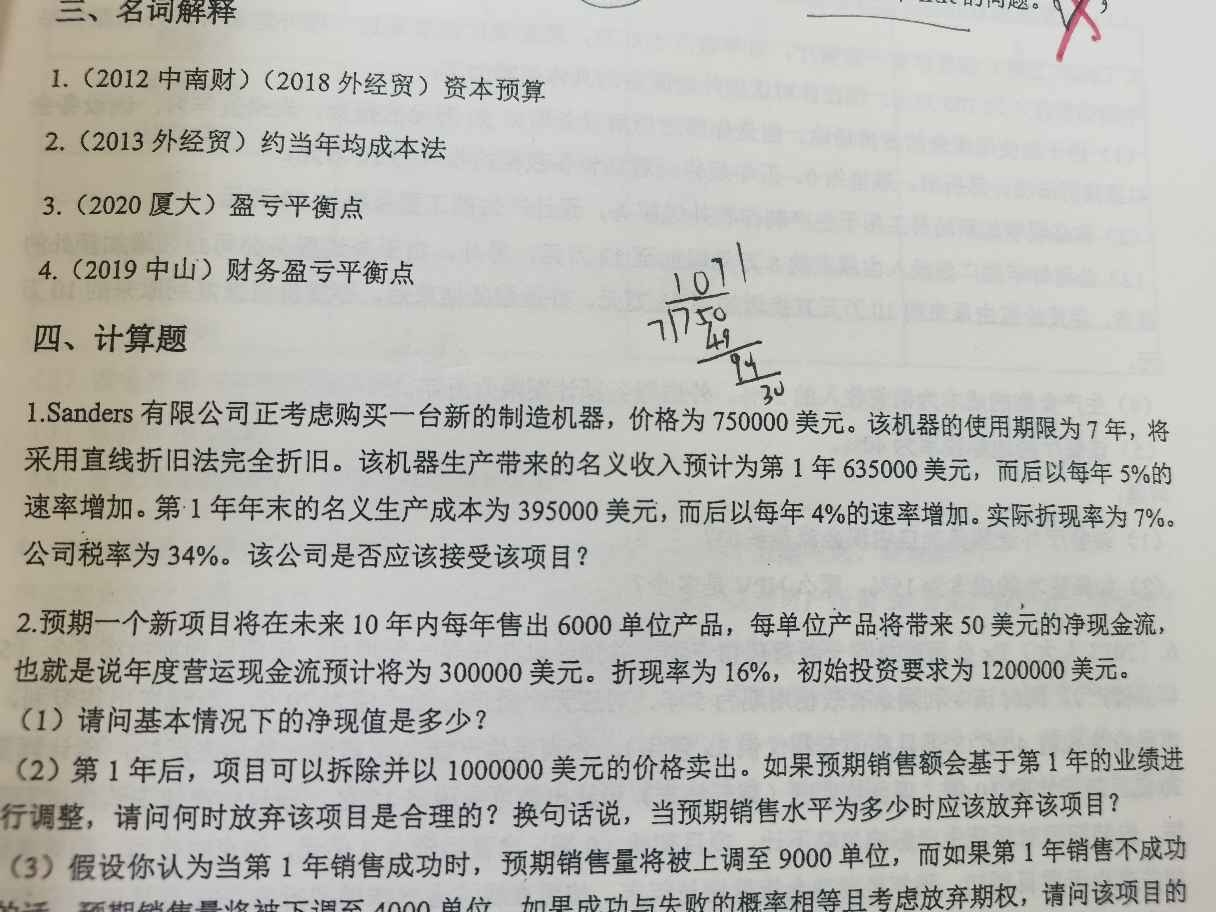 的问题。
三、名词解释
1.（2012 中南财）（2018 外经贸）资本预算
2.（2013 外经贸）约当年均成本法
3.（2020 厦大）盈亏平衡点
4.（2019 中山）财务盈亏平衡点
1071
7 750
49
30
四、计算题
1.Sanders 有限公司正考虑购买一台新的制造机器，价格为 750000 美元。该机器的使用期限为 7 年，将
采用直线折旧法完全折旧。该机器生产带来的名义收入预计为第 1 年 635000 美元，而后以每年 5%的
速率增加。第 1 年年末的名义生产成本为 395000 美元，而后以每年 4%的速率增加。实际折现率为 7%。
公司税率为 34%。该公司是否应该接受该项目？
2.预期一个新项目将在未来 10 年内每年售出 6000 单位产品，每单位产品将带来 50 美元的净现金流，
也就是说年度营运现金流预计将为 300000 美元。折现率为 16%，初始投资要求为 1200000 美元。
（1）请问基本情况下的净现值是多少？
（2）第 1 年后，项目可以拆除并以 1000000 美元的价格卖出。如果预期销售额会基于第 1 年的业绩进
行调整，请问何时放弃该项目是合理的？换句话说，当预期销售水平为多少时应该放弃该项目？
（3）假设你认为当第 1 年销售成功时，预期销售量将被上调至 9000 单位，而如果第 1 年销售不成功
的话，预期销售量将被下调至 4000 单位。如果成功与失败的概率相等且考虑放弃期权，请问该项目的